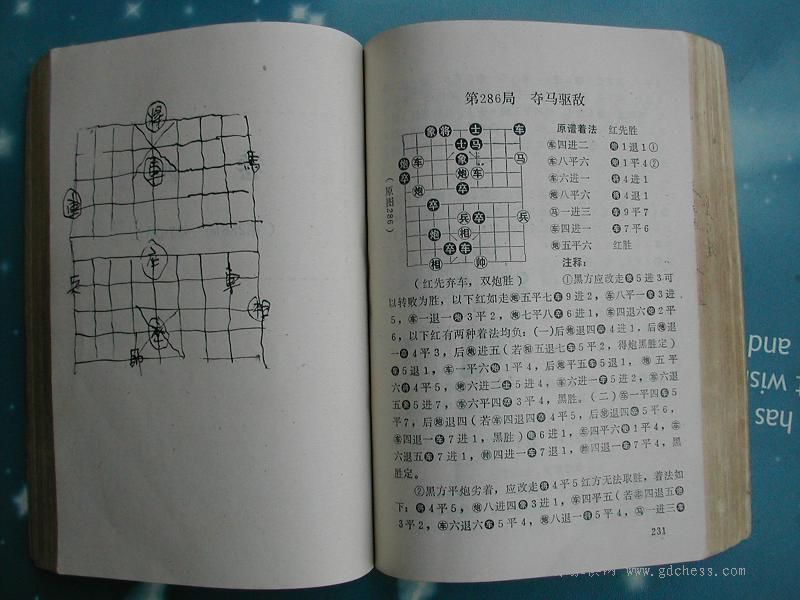 将
馬
兵
車
車
相
帅
第286局 夺马驱敌
原谱着法 红先胜
车四进二 炮1退1①
车八平六 炮1平4②
车六进一 将4进1
炮八平六 将4退1
马一进三 车9平7
车四进一 车7平6
炮五平六 红胜
(原图286)
(红先弃车，双炮胜)
注释：
①黑方应改走象5进3可
以转败为胜，以下红如走炮五平七车9进2，车八平一象3进
5，车一退一象3平2，炮七平八卒6进1，车四退六炮2平
6，以下红有两种着法均负：(一)后炮退四将4进1，后炮退
一卒4平3，后炮进五(若相五退七车5平2，得炮黑胜定)
象5退1，车一平六炮1平4，后炮平五车5退1，炮五平
六将4平5，炮六进二士5进4，车六进一卒5进2，车六退
五象5进7，车六平四卒3平4，黑胜。(二)车一平四车5
平7，后炮退四(若车四退四卒4平5，后炮退四车5平6，
车四退一车7进1，黑胜)炮6进1，车四平六炮1平4，车
六退五车7进1，帅四进一车7退1，帅四退一车7平4，黑
胜定。
②黑方平炮劣着，应改走将4平5红方无法取胜，着法如
下：将4平5，炮八进四象3进1，车四平五(若车四退五炮
3平2，车六退六车5平4，炮八退一将5平4，马一进三
231
www.gdchess.com